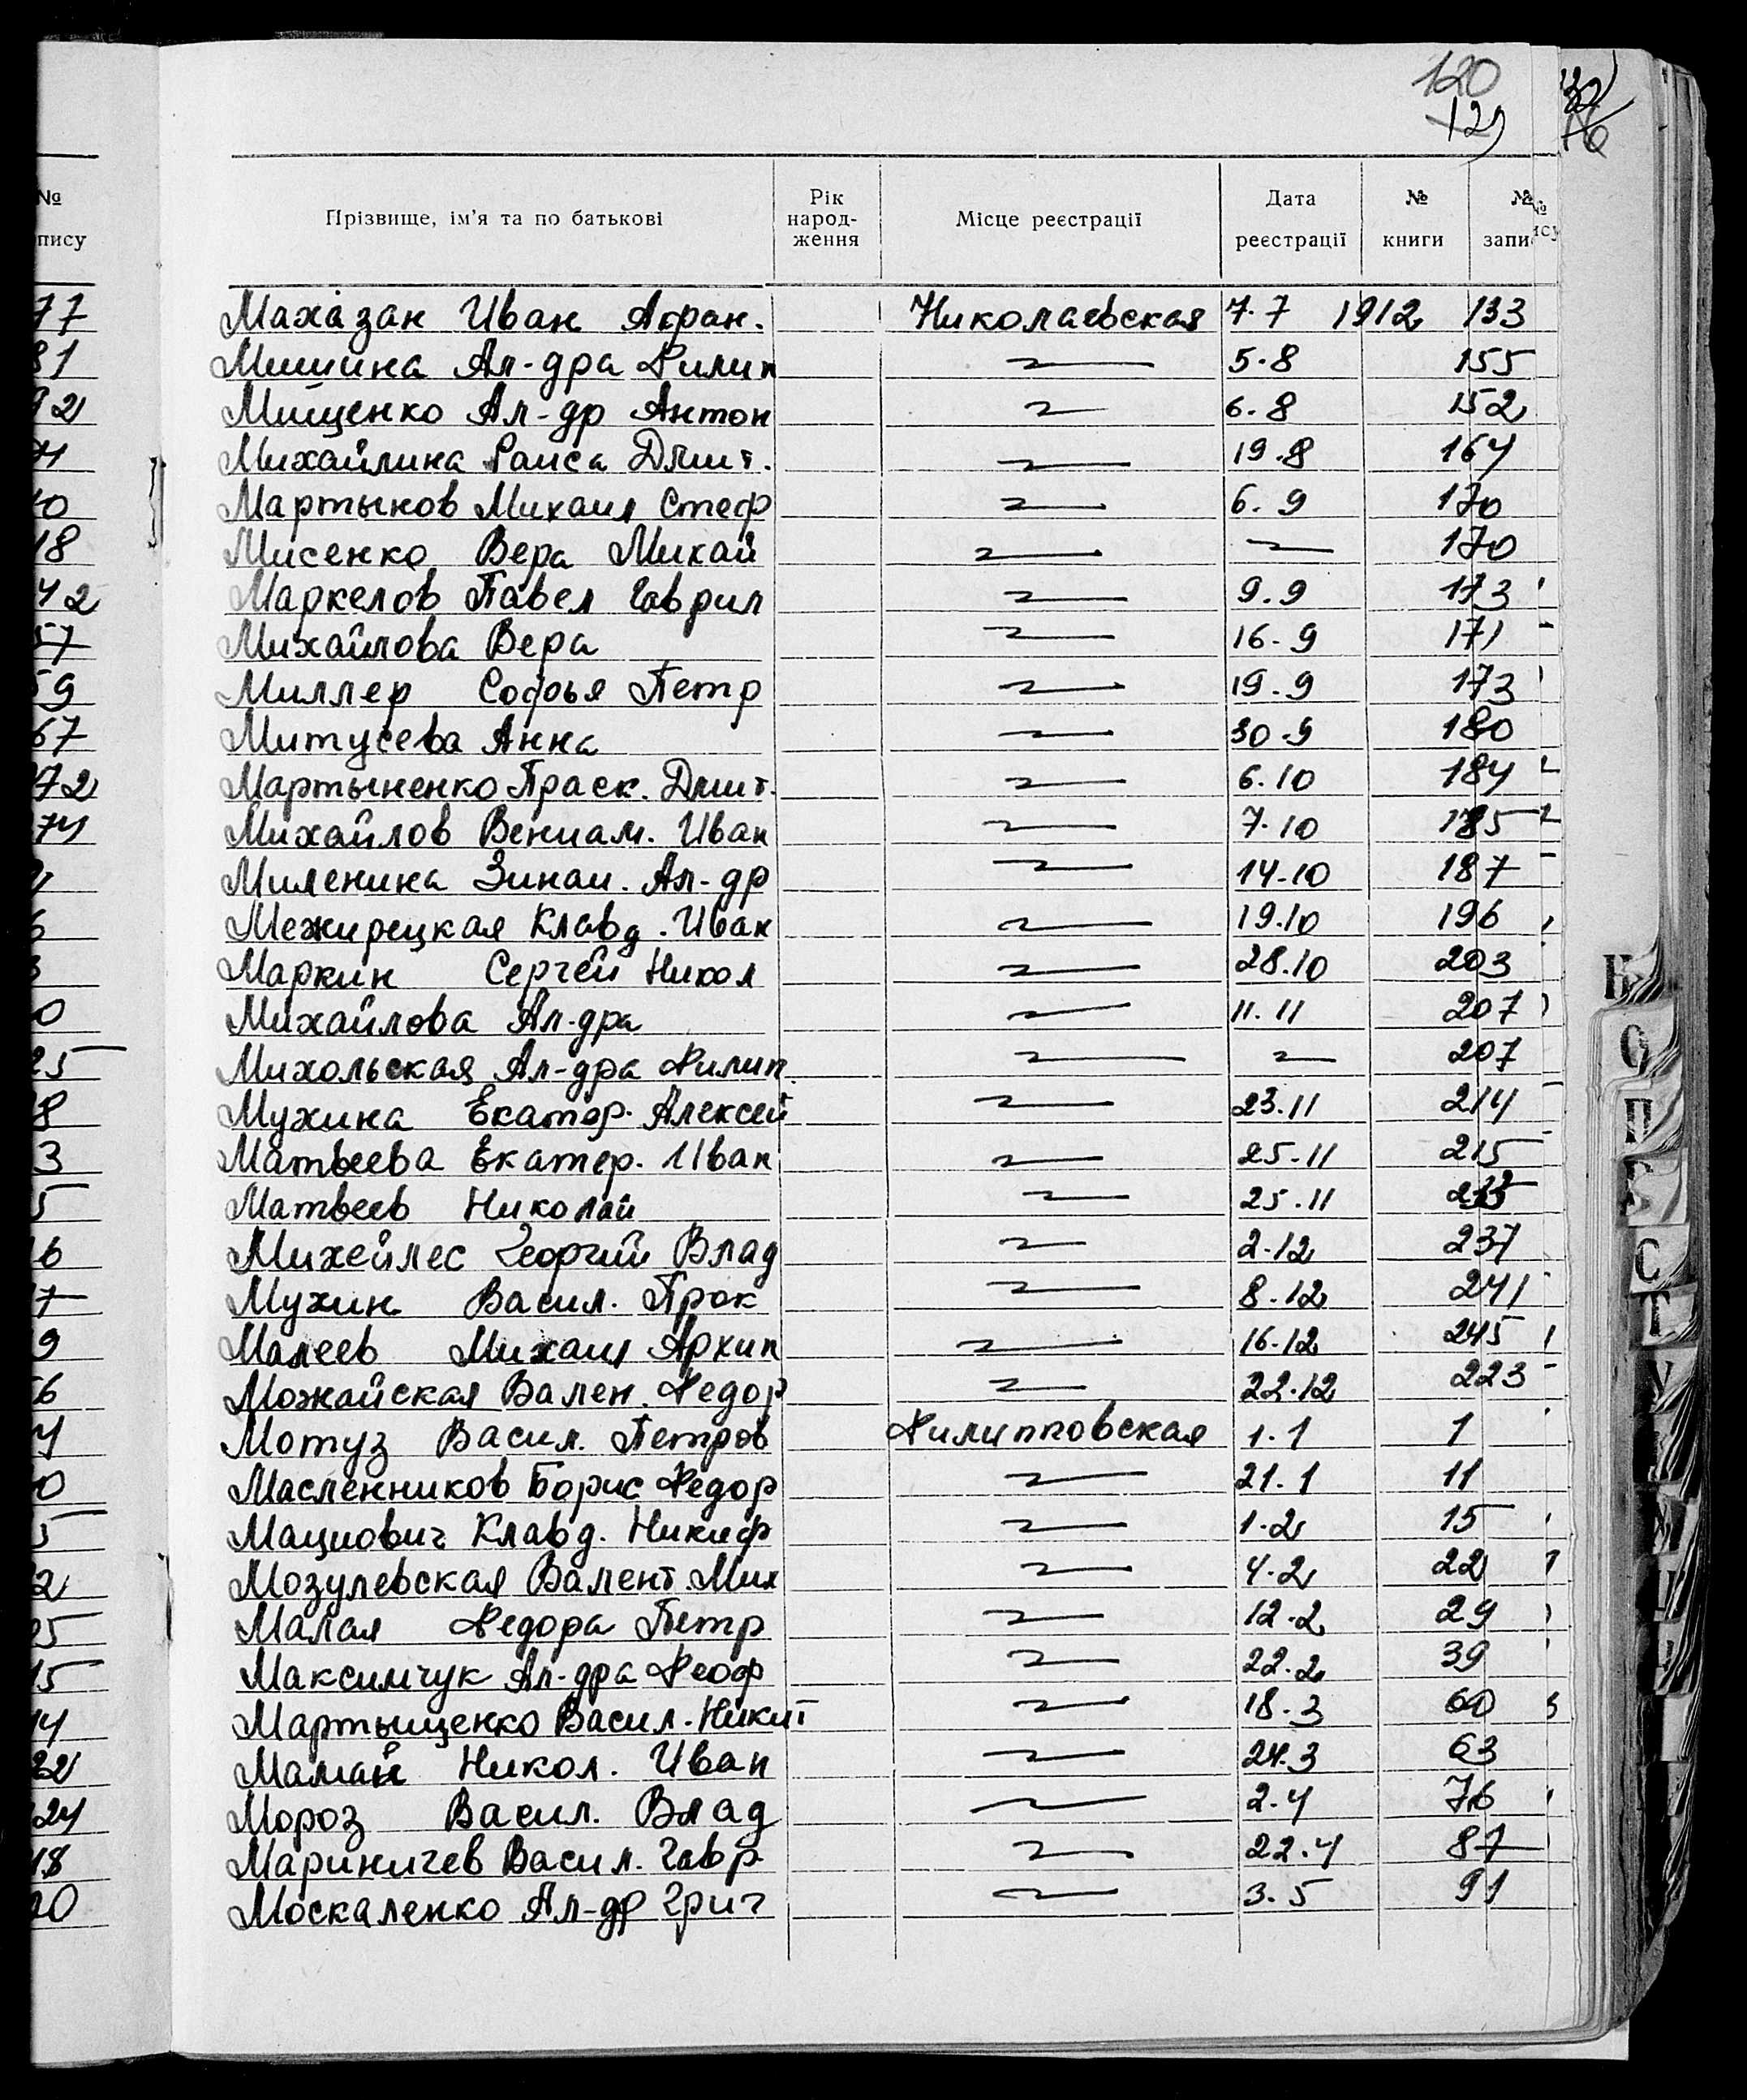 120
129
№
пису
Прізвище, ім'я та по батькові
Рік народ-ження
Місце реєстрації
Дата реєстрації
№ книги
№ запи
77 Махазан Иван Афран. Николаевская 7.7 1912 133
81 Мишина Ал-дра Филип 〃 5.8 155
92 Мищенко Ал-др Антон 〃 6.8 152
Михайлина Раиса Дмит. 〃 19.8 164
Мартынов Михаил Стеф 〃 6.9 170
18 Мисенко Вера Михай 〃 〃 170
42 Маркелов Павел Гаврил 〃 9.9 173
57 Михайлова Вера 〃 16.9 171
59 Миллер Софья Петр 〃 19.9 173
67 Митусева Анна 〃 30.9 180
72 Мартыненко Праск. Дмит. 〃 6.10 184
74 Михайлов Вениам. Иван 〃 7.10 185
Миленина Зинаи. Ал-др 〃 14.10 187
Межирецкая Клавд. Иван 〃 19.10 196
Маркин Сергей Никол 〃 28.10 203
0 Михайлова Ал-дра 〃 11.11 207
25 Михольская Ал-дра Филип. 〃 〃 207
8 Мухина Екатер. Алексей 〃 23.11 214
3 Матвеева Екатер. Иван 〃 25.11 215
5 Матвеев Николай 〃 25.11
6 Михейлес Георгий Влад 〃 2.12 237
7 Мухин Васил. Прок 〃 8.12 241
9 Малеев Михаил Архип 〃 16.12 245
6 Можайская Вален. Федор 〃 22.12 223
Мотуз Васил. Петров Филипповская 1.1 1
0 Масленников Борис Федор 〃 21.1 11
5 Мациович Клавд. Никиф 〃 1.2 15
2 Мозулевская Валент. Мих 〃 4.2 22
25 Малая Федора Петр 〃 12.2 29
15 Максимчук Ал-дра Феоф 〃 22.2 39
14 Мартыщенко Васил. Никит 〃 18.3 60
22 Маман Никол. Иван 〃 24.3 63
24 Мороз Васил. Влад 〃 2.4 76
18 Мариничев Васил. Гавр. 〃 22.4 87
Москаленко Ал-др Григ 〃 3.5 91
Н
О
П
Р
С
Т
У